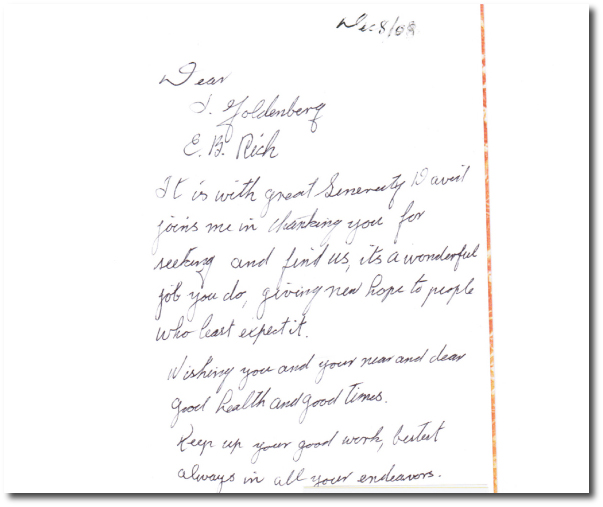 Dec 8/08
Dear
J. Goldenberg
E. B. Rich
It is with great Senercity David
joins me in thanking you for
seeking and find us, its a wonderful
job you do, giving new hope to people
who least expect it.
Wishing you and your near and dear
good health and good times.
Keep up your good work,
always in all your endeavors.